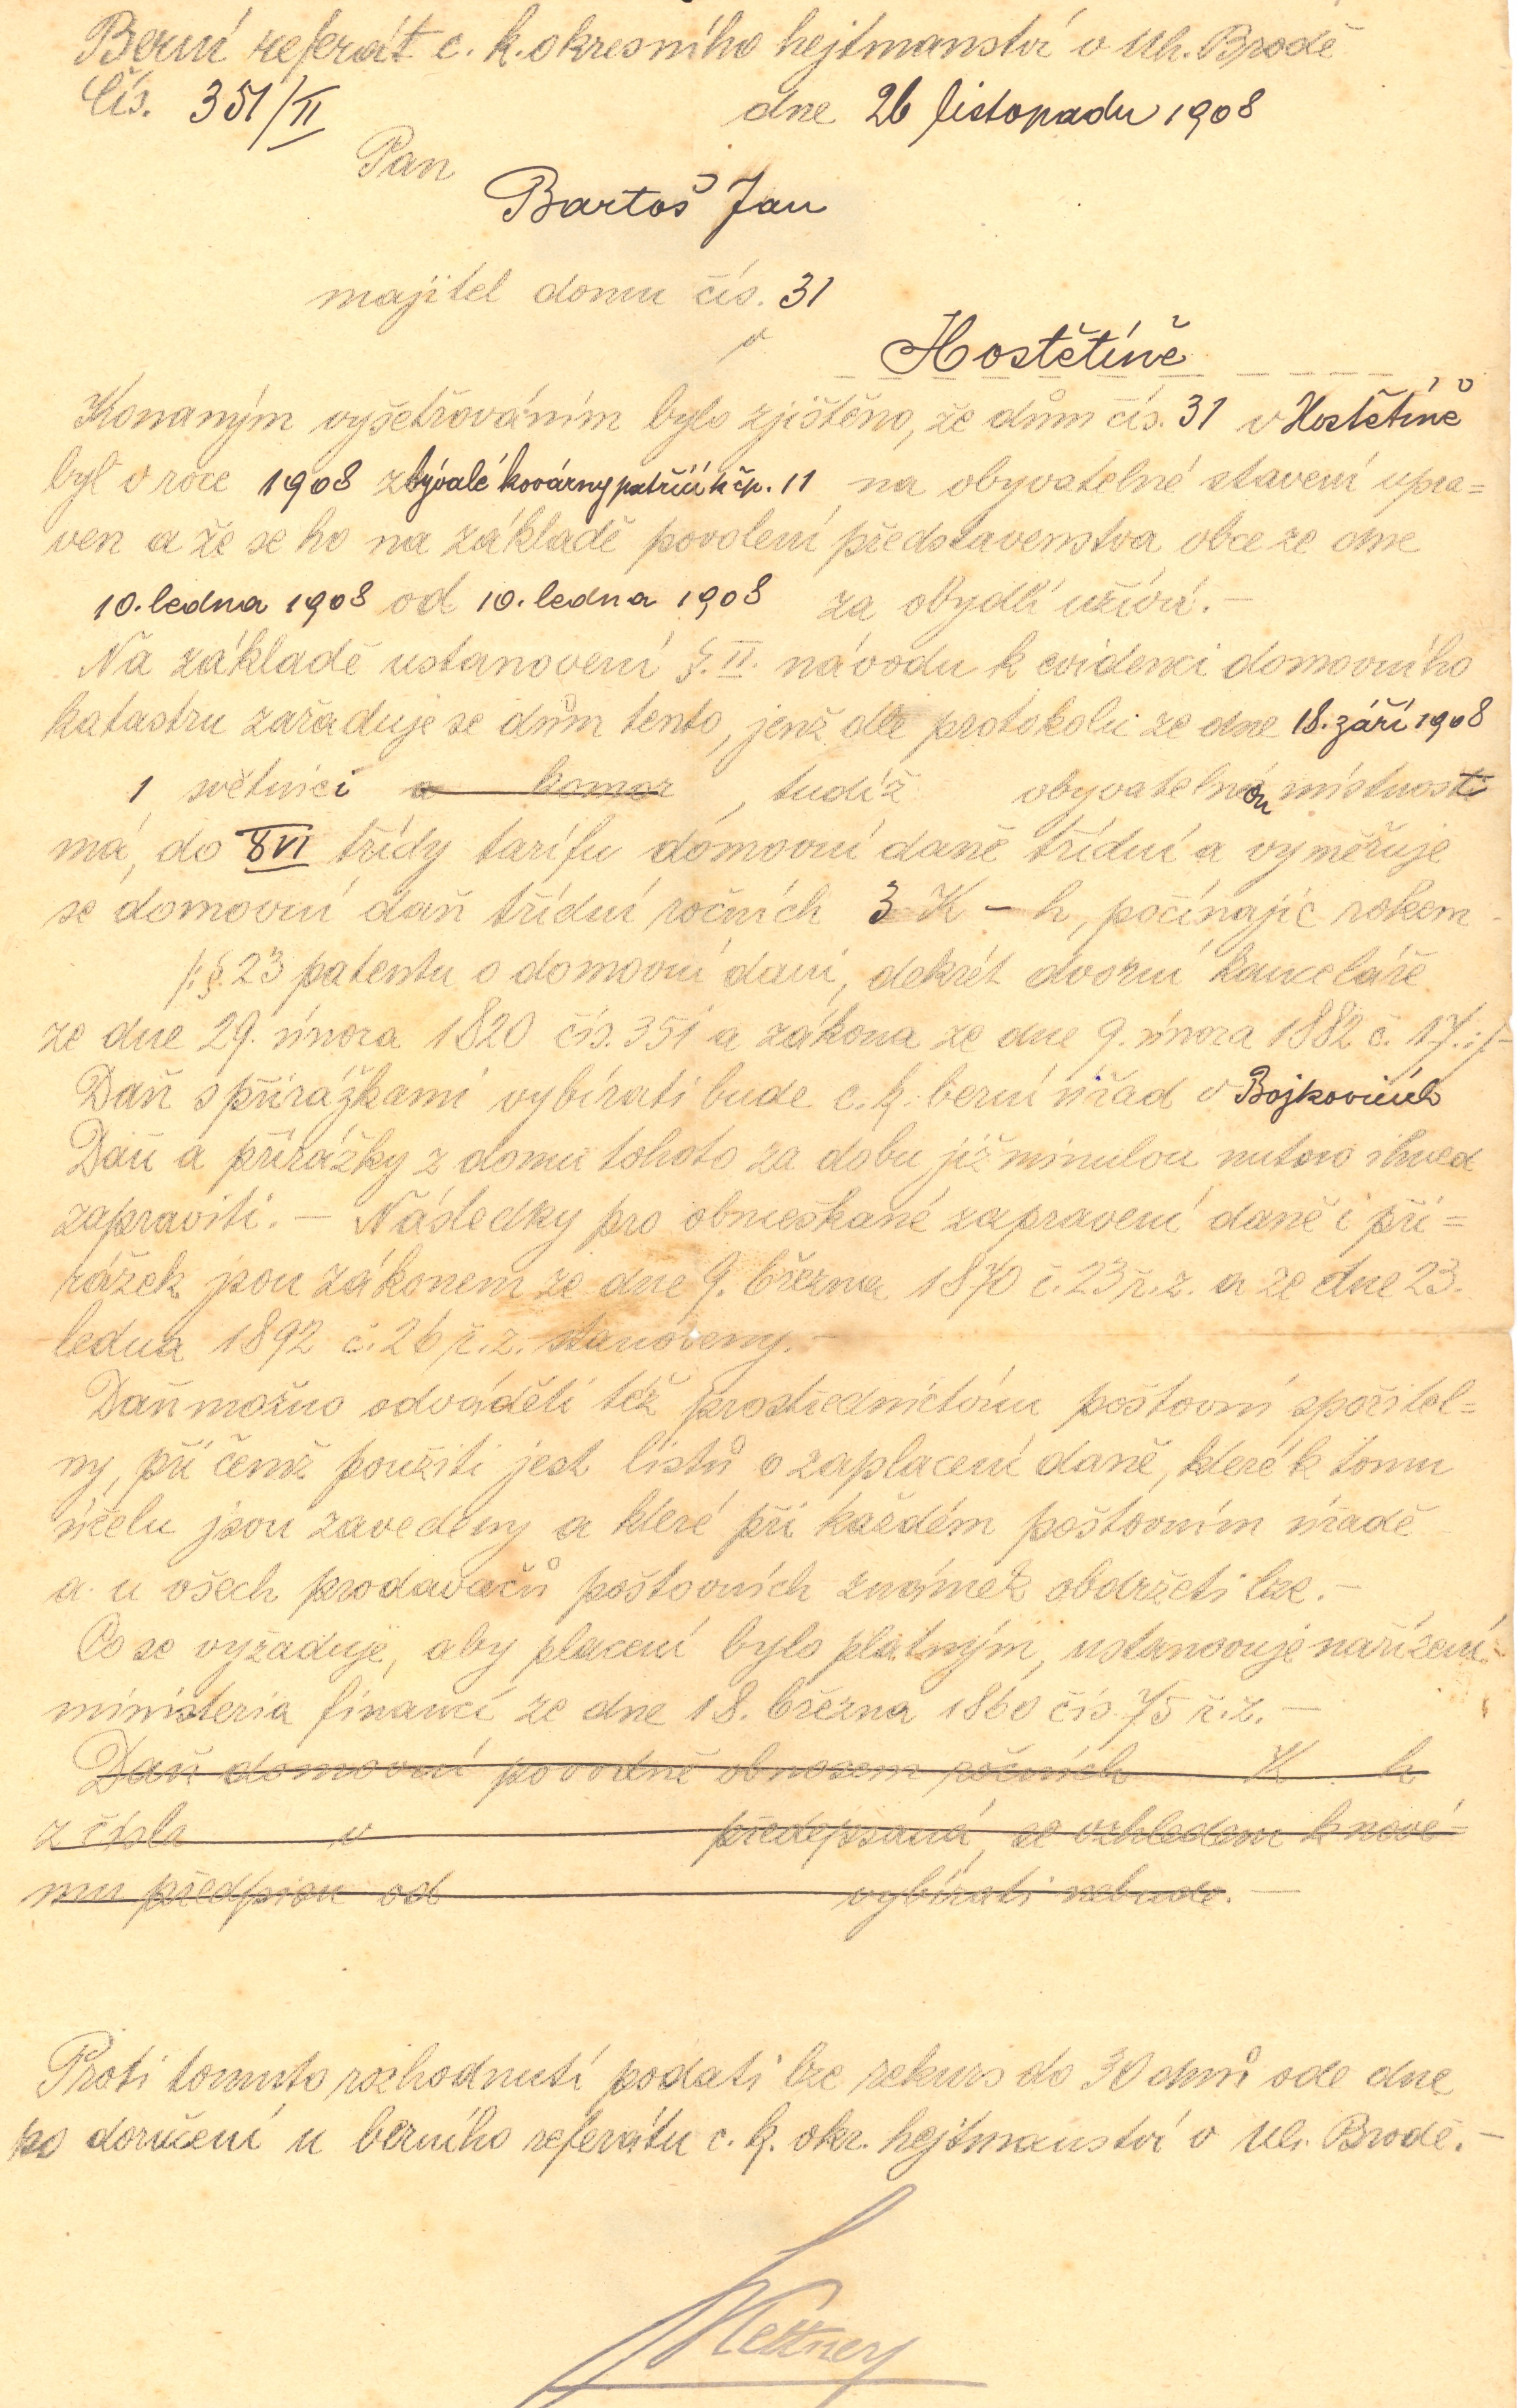 Berní referát c. k. okresního hejtmanství v Uh. Brodě
Čís. 351/II dne 26 listopadu 1908
Pan
Bartoš Jan
majitel domu čís. 31
v Hostětíně
Konaným vyšetřováním bylo zjištěno, že dům čís. 31 v Hostětíně
byl v roce 1908 z bývalé kovárny patřící k čp. 11 na obyvatelné stavení upra=
ven a že se ho na základě povolení představenstva obce ze dne
10. ledna 1908 od 10. ledna 1908 za obydlí užívá. —
Na základě ustanovení §. II. návodu k evidenci domovního
katastru zařaduje se dům tento, jenž dle protokolu ze dne 18. září 1908
1 světnici a komor, tudíž obyvatelnou místnost
má, do XVI třídy tarifu domovní daně třídní a vyměřuje
se domovní daň třídní ročních 3 K – h, počínajíc rokem
/: §. 23 patentu o domovní dani, dekrét dvorní kanceláře
ze dne 29. února 1820 čís. 351 a zákona ze dne 9. února 1882 č. 17. :/-
Daň s přirážkami vybírati bude c. k. berní úřad v Bojkovicích
Daň a přirážky z domu tohoto za dobu již minulou nutno ihned
zapraviti. — Následky pro obmeškané zapravení daně i při=
rážek jsou zákonem ze dne 9. března 1870 č. 23 ř. z. a ze dne 23.
ledna 1892 č. 26 ř. z. stanoveny. —
Daň možno odváděti též prostřednictvím poštovní spořitel=
ny, při čemž použiti jest listů o zaplacení daně, které k tomu
účelu jsou zavedeny a které při každém poštovním úřadě
a u všech prodavačů poštovních známek obdržeti lze. —
Co se vyžaduje, aby placení bylo platným, ustanovuje nařízení
ministeria financí ze dne 18. března 1860 čís. 75 ř. z. —
Daň domovní původně obnosem ročních K h
z čísla v předepsaná, se vzhledem k nové=
mu předpisu od vybírati nebude. —
Proti tomuto rozhodnutí podati lze rekurs do 30 dnů ode dne
po doručení u berního referátu c. k. okr. hejtmanství v Uh. Brodě. —